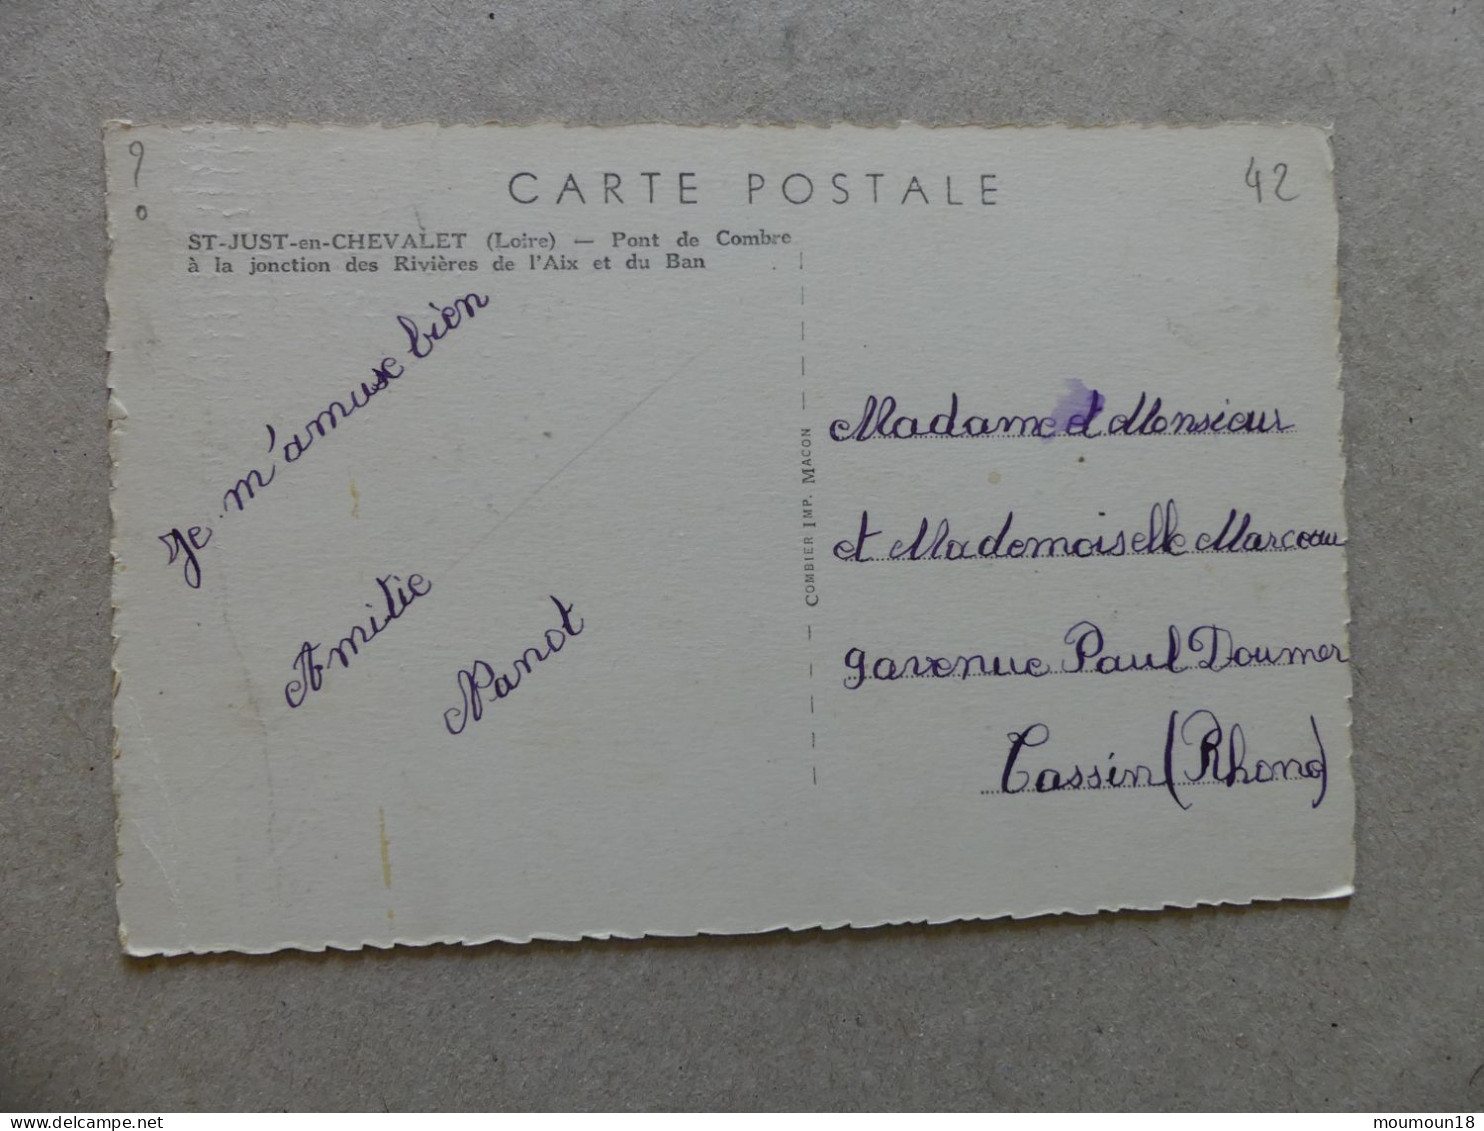 ?
CARTE POSTALE
42
ST-JUST-en-CHEVALET (Loire) — Pont de Combre
à la jonction des Rivières de l'Aix et du Ban
Je m'amuse bien
Amitie
Nanot
COMBIER IMP. MACON
Madame et Monsieur
et Mademoiselle Marceau
9 avenue Paul Doumer
Tassin (Rhone)
moumoun18